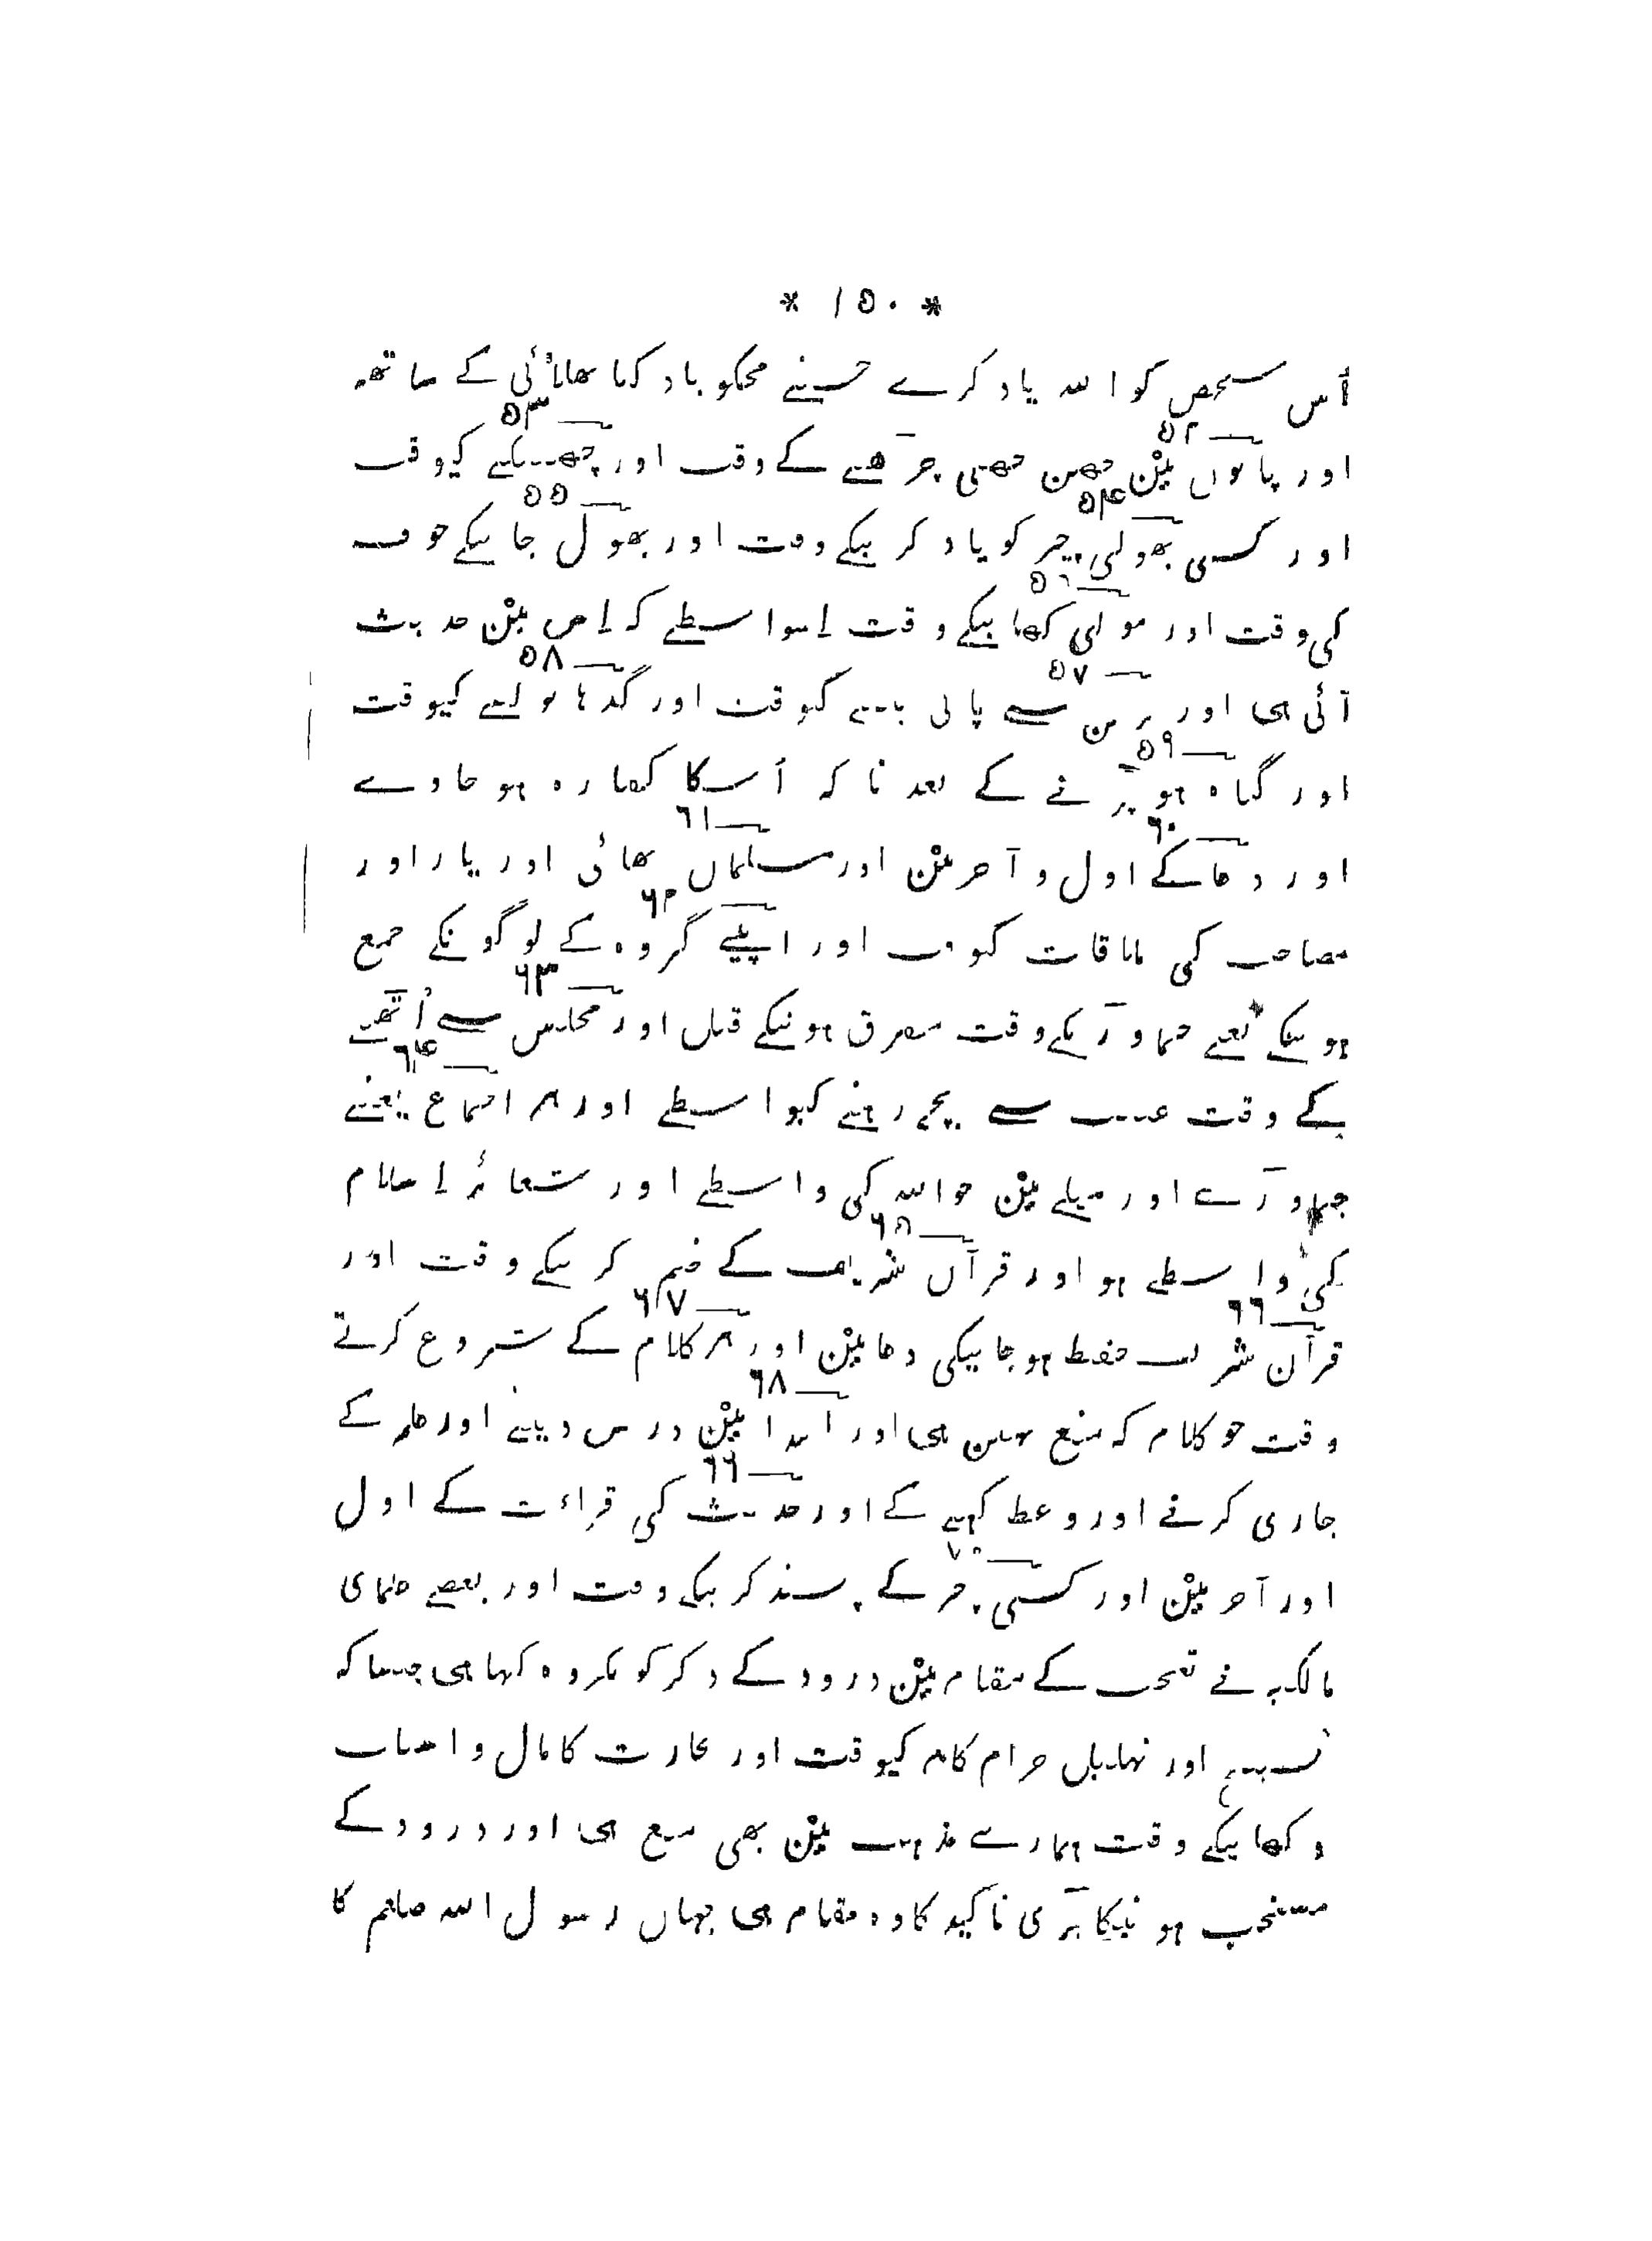 * ۱۵۰ *
اُس شخص کو اللہ یاد کرے جسنے مجکو یاد کیا بھلائی کے ساتھہ
۵۲ ۵۳
اور پانوں میْن جھن جھنی چڑھنے کے وقت اور چھینکنے کیوقت
۵۴ ۵۵
اور کسی بھولی چیز کو یاد کرنیکے وقت اور بھول جانیکے خوف
۵۶
کی وقت اور مولی کھانیکے وقت اسواسطے کہ اس میْن حدیث
۵۷ ۵۸
آئی ہی اور برتن سے پانی پینے کیوقت اور گدہا بولنے کیوقت
۵۹
اور گناہ ہو پڑنے کے بعد تا کہ اُسکا کفارہ ہو جاوے
۶۰ ۶۱
اور دعا کے اول و آخر میْن اور مسلمان بھائی اور یار اور
۶۲
مصاحب کی ملاقات کیوقت اور اپنے گروہ کے لوگونکے جمع
۶۳
ہونیکے یعنے جماوڑیکے وقت متفرق ہونیکے قبل اور مجلس سے اُٹھنے
۶۴
کے وقت غیبت سے بچے رہنے کیواسطے اور ہر اجتماع یعنے
جماوڑے اور میلے میْن جو اللہ کی واسطے اور شعائر اسلام
۶۵
کی واسطے ہو اور قرآن شریف کے ختم کرنیکے وقت اور
۶۶ ۶۷
قرآن شریف حفظ ہو جانیکی دعا میْن اور ہر کلام کے شروع کرتے
۶۸
وقت جو کلام کہ منع نہین ہی اور ابتدا میْن درس دینے اور علم کے
۶۹
جاری کرنے اور وعظ کہنے کے اور حدیث کی قراءت کے اول
۷۰
اور آخر میْن اور کسی چیز کے پسند کرنیکے وقت اور بعضے علمای
مالکیہ نے تعجب کے مقام میْن درود کے ذکر کو مکروہ کہا ہی جیسا کہ
تسبیح اور تہلیل حرام کام کیوقت اور تجارت کا مال و اسباب
دکھانیکے وقت ہمارے مذہب میْن بھی منع ہی اور درود کے
مستحب ہونیکا بڑی تاکید کا وہ مقام ہی جہاں رسول اللہ صلعم کا